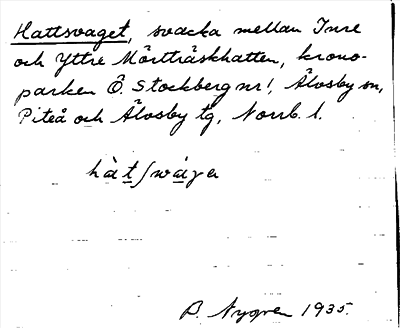 Hattsvaget, svacka mellan Inre
och Yttre Mörtträskhatten, krono-
parken Ö. Stockberg nr 1, Älvsby sn,
Piteå och Älvsby tg, Norrb. l.
hàt̲ʃwá̲ga
B. Nygren 1935.